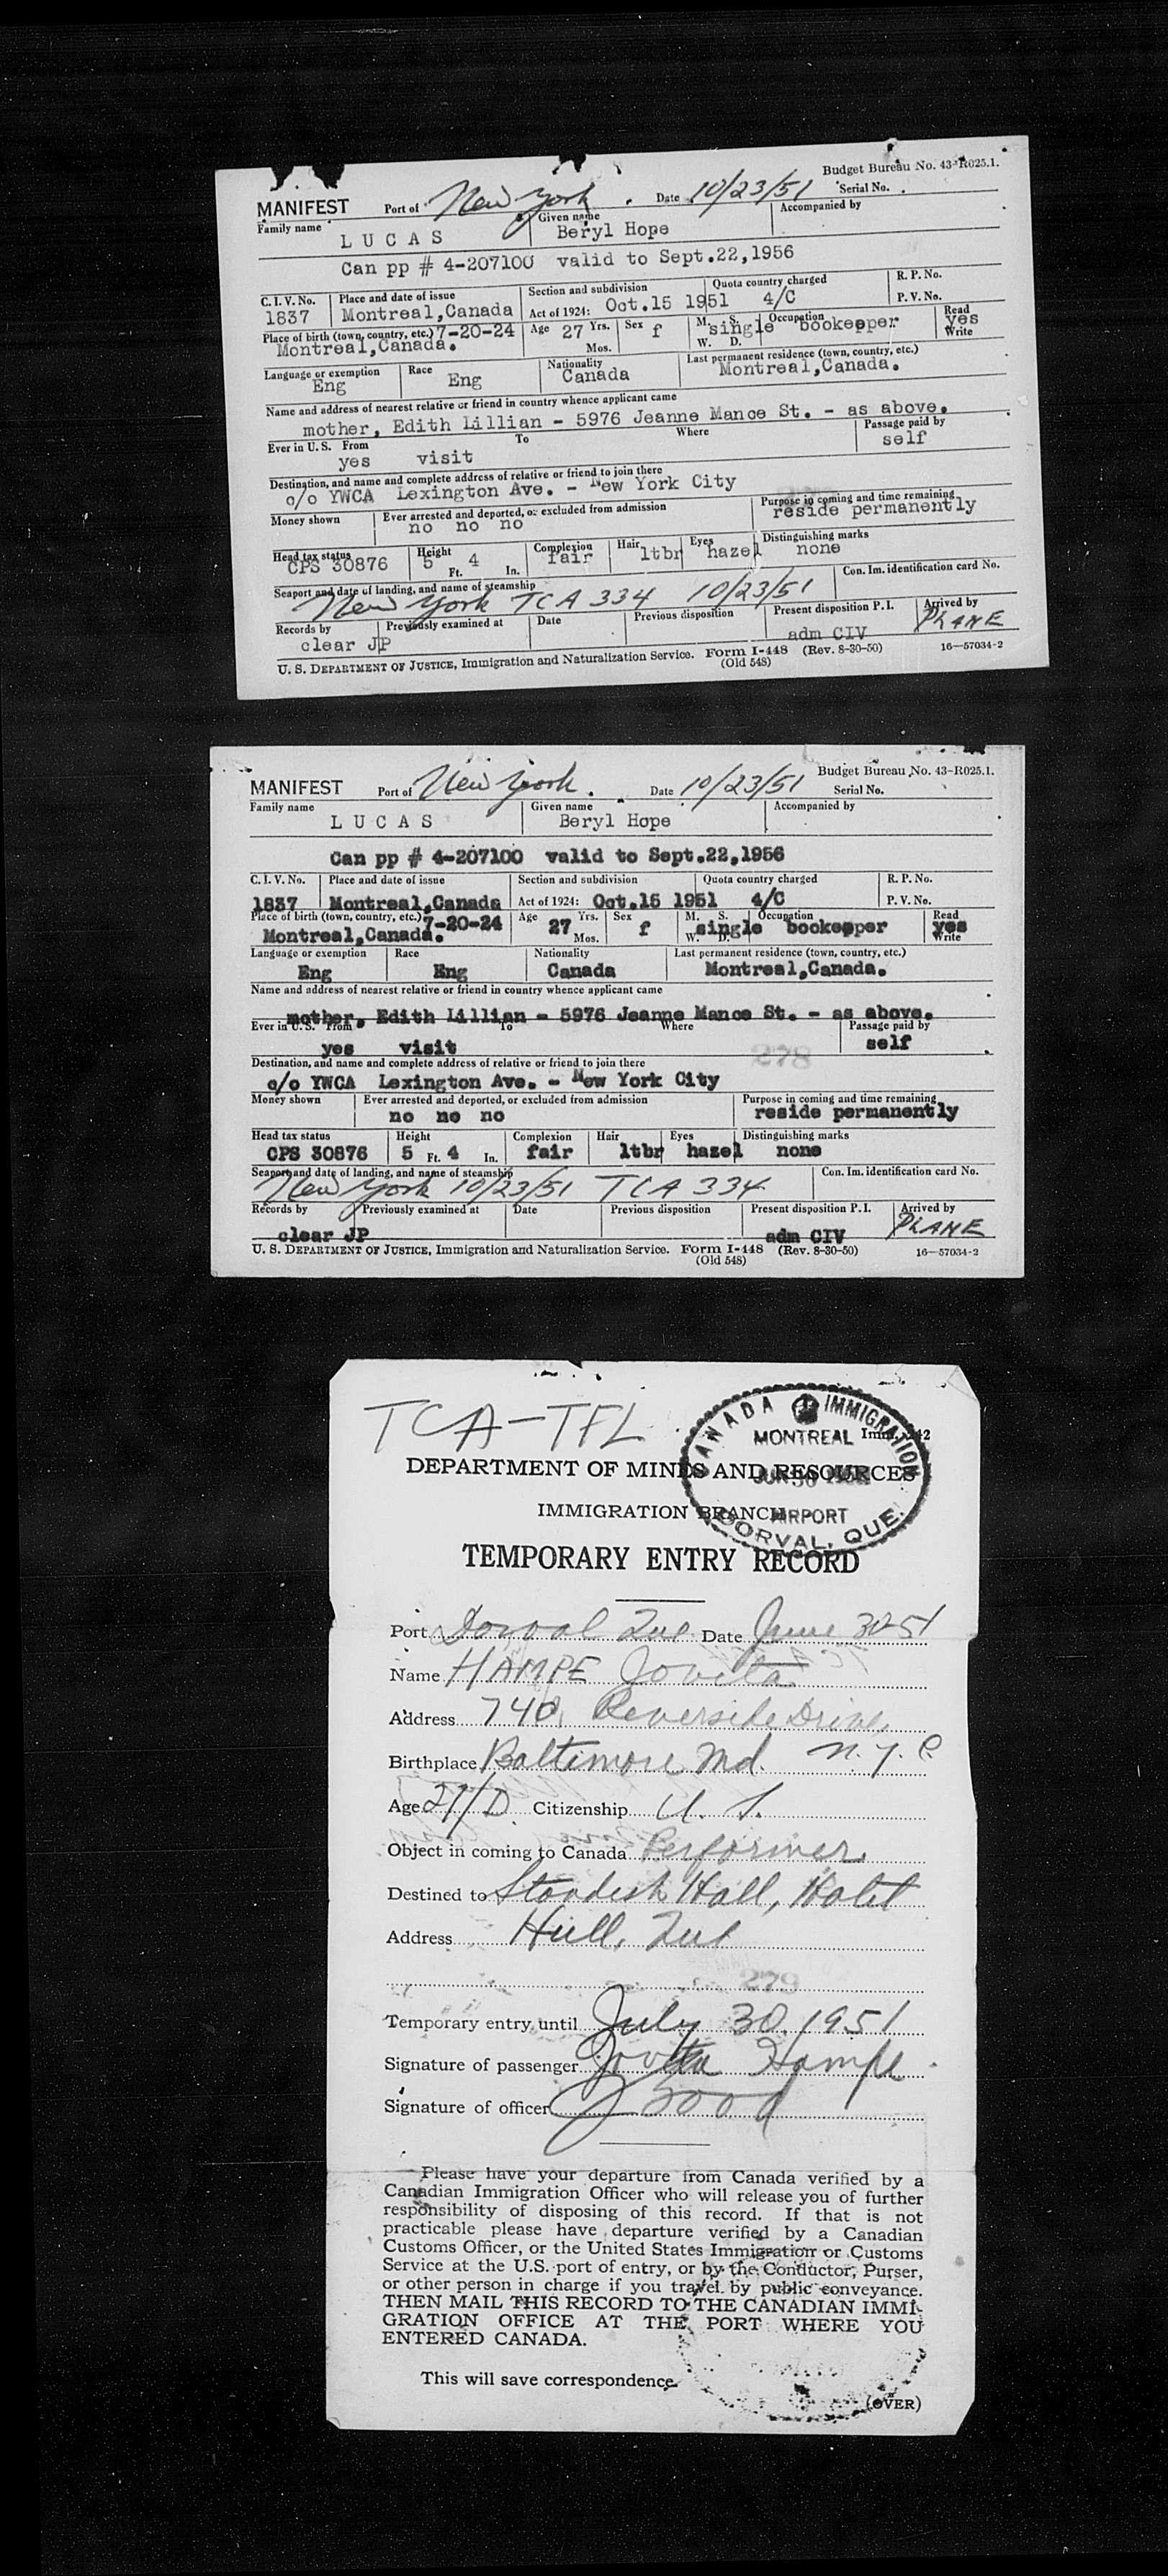 Budget Bureau No. 43-R025.1.
MANIFEST Port of New York . Date 10/23/51 Serial No.
Family name Given name Accompanied by
LUCAS Beryl Hope
Can pp # 4-207100 valid to Sept.22,1956
C. I. V. No. Place and date of issue Section and subdivision Quota country charged R. P. No.
1837 Montreal,Canada Act of 1924: Oct.15 1951 4/C P. V. No.
Place of birth (town, country, etc.) 7-20-24 Age 27 Yrs. Sex f M. S. single Occupation bookeeper Read yes
Montreal,Canada. Mos. W. D. Write
Language or exemption Race Nationality Last permanent residence (town, country, etc.)
Eng Eng Canada Montreal,Canada.
Name and address of nearest relative or friend in country whence applicant came
mother, Edith Lillian - 5976 Jeanne Mance St. - as above.
Ever in U. S. From To Where Passage paid by
yes visit self
Destination, and name and complete address of relative or friend to join there
c/o YWCA Lexington Ave. - New York City
Money shown Ever arrested and deported, or excluded from admission Purpose in coming and time remaining
no no no reside permanently
Head tax status Height Complexion Hair Eyes Distinguishing marks
CPS 30876 5 Ft. 4 In. fair ltbr hazel none
Seaport and date of landing, and name of steamship Con. Im. identification card No.
New York TCA 334 10/23/51
Records by Previously examined at Date Previous disposition Present disposition P. I. Arrived by
clear JP adm CIV PLANE
U. S. DEPARTMENT OF JUSTICE, Immigration and Naturalization Service. Form I-448 (Rev. 8-30-50) 16—57034-2
(Old 548)
Budget Bureau No. 43-R025.1.
MANIFEST Port of New York . Date 10/23/51 Serial No.
Family name Given name Accompanied by
LUCAS Beryl Hope
Can pp # 4-207100 valid to Sept.22,1956
C. I. V. No. Place and date of issue Section and subdivision Quota country charged R. P. No.
1837 Montreal,Canada Act of 1924: Oct.15 1951 4/C P. V. No.
Place of birth (town, country, etc.) 7-20-24 Age 27 Yrs. Sex f M. S. single Occupation bookeeper Read yes
Montreal,Canada. Mos. W. D. Write
Language or exemption Race Nationality Last permanent residence (town, country, etc.)
Eng Eng Canada Montreal,Canada.
Name and address of nearest relative or friend in country whence applicant came
mother, Edith Lillian - 5976 Jeanne Mance St. - as above.
Ever in U. S. From To Where Passage paid by
yes visit self
278
Destination, and name and complete address of relative or friend to join there
c/o YWCA Lexington Ave. - New York City
Money shown Ever arrested and deported, or excluded from admission Purpose in coming and time remaining
no no no reside permanently
Head tax status Height Complexion Hair Eyes Distinguishing marks
CPS 30876 5 Ft. 4 In. fair ltbr hazel none
Seaport and date of landing, and name of steamship Con. Im. identification card No.
New York 10/23/51 TCA 334
Records by Previously examined at Date Previous disposition Present disposition P. I. Arrived by
clear JP adm CIV PLANE
U. S. DEPARTMENT OF JUSTICE, Immigration and Naturalization Service. Form I-448 (Rev. 8-30-50) 16—57034-2
(Old 548)
TCA-TFL
CANADA IMMIGRATION
MONTREAL
JUN 30
AIRPORT
DORVAL, QUE.
DEPARTMENT OF MINES AND RESOURCES
IMMIGRATION BRANCH
TEMPORARY ENTRY RECORD
Port Dorval Que Date June 30-51
Name HAMPE Jovita
Address 740, Reverside Drive,
Birthplace Baltimore Md. N.Y.C
Age 27/D Citizenship U. S.
Object in coming to Canada Performer
Destined to Standish Hall, Hotel
Address Hull, Que
279
Temporary entry until July 30, 1951
Signature of passenger Jovita Hampe
Signature of officer
Please have your departure from Canada verified by a
Canadian Immigration Officer who will release you of further
responsibility of disposing of this record. If that is not
practicable please have departure verified by a Canadian
Customs Officer, or the United States Immigration or Customs
Service at the U.S. port of entry, or by the Conductor, Purser,
or other person in charge if you travel by public conveyance.
THEN MAIL THIS RECORD TO THE CANADIAN IMMI-
GRATION OFFICE AT THE PORT WHERE YOU
ENTERED CANADA.
This will save correspondence.
(OVER)